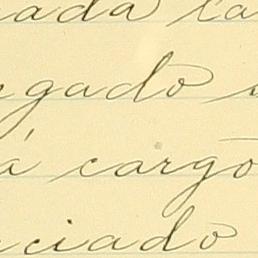 ada la
gado
á cargo
ciado